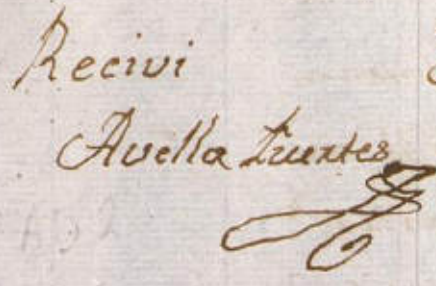 Recivi
Avella Fuertes